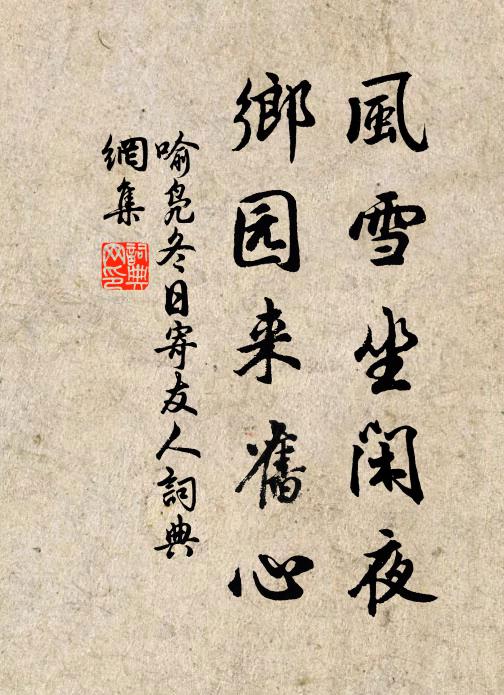 風雪坐閑夜
鄉园来舊心
喻凫冬日寄友人詞典
網集
詞典
网印